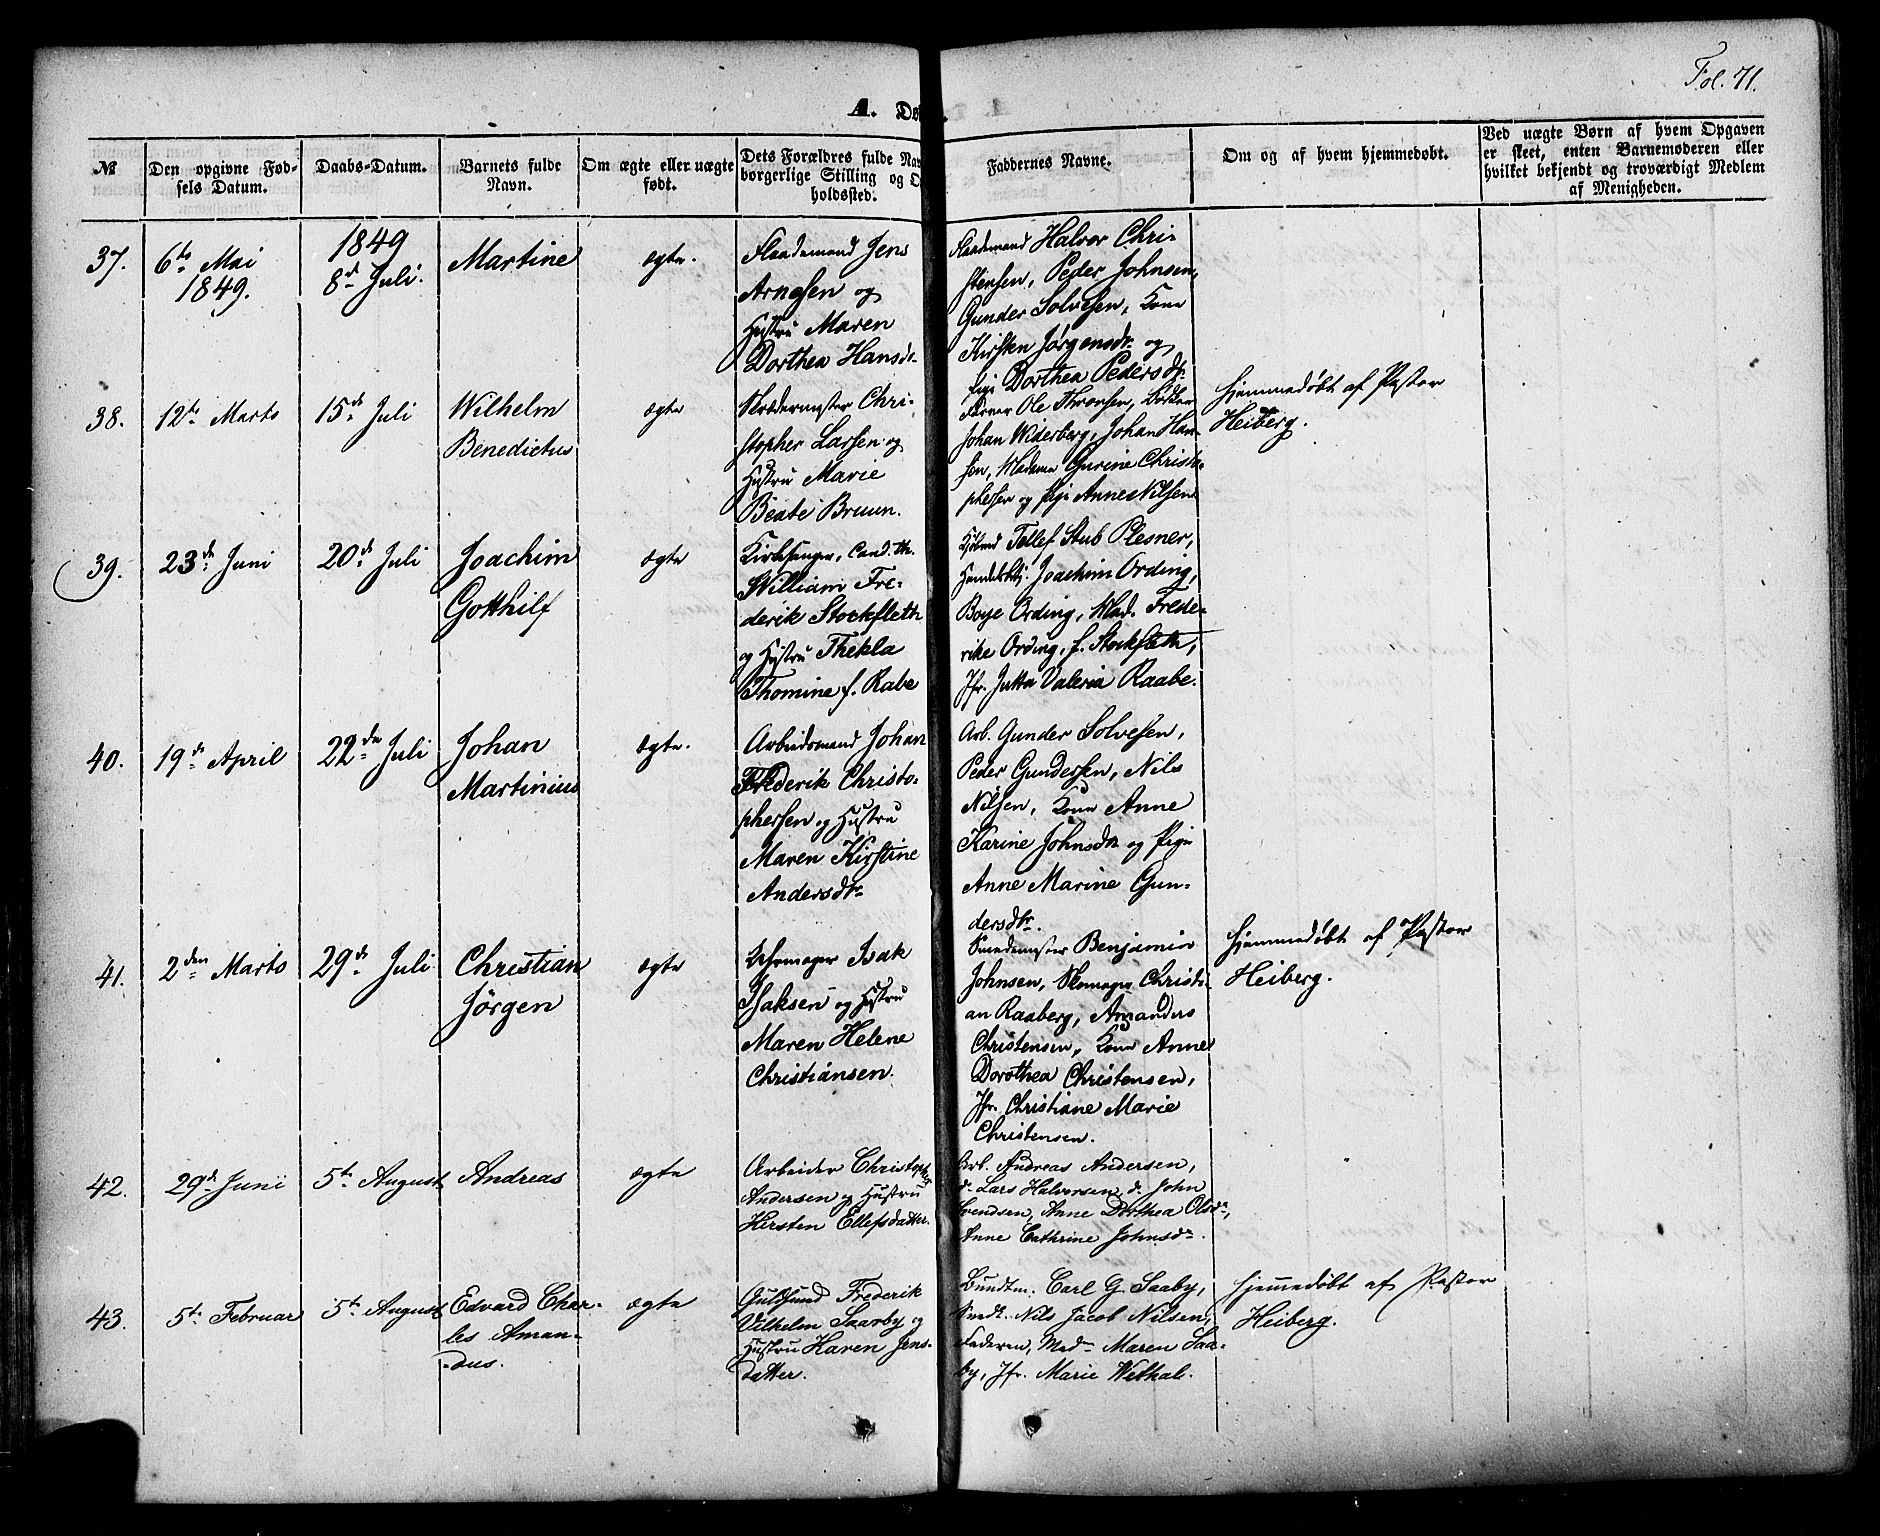 Fol. 71.
A. Dø
№
Den opgivne Fød-
sels Datum.
Daabs-Datum.
Barnets fulde
Navn.
Om ægte eller uægte
født.
Dets Forældres fulde Nav
borgerlige Stilling og O
holdssted.
Faddernes Navne.
Om og af hvem hjemmedøbt.
Ved uægte Børn af hvem Opgaven
er skeet, enten Barnemoderen eller
hvilket bekjendt og troværdigt Medlem
af Menigheden.
37.
6te Mai
1849.
1849
8de Juli.
Martine
ægte.
Flaademand Jens
Arnesen og
Hustru Maren
Dorthea Hansdr
Flaademand Halvor Chri-
stensen, Peder Johnsen,
Gunder Solvesen, Kone
Kirsten Jørgensdr og
Pige Dorthea Pedersdr.
38.
12te Marts
15de Juli
Wilhelm
Benedictus
ægte
Skrædermester Chri-
stopher Larsen og
Hustru Marie
Beate Bruun.
Farver Ole Thronsen, Bødker
Johan Widerberg, Johan Han-
sen, Madame Gurine Christo-
phersen og Pige Anne Nilsen
Hjemmedøbt af Pastor
Heiberg.
39.
23de Juni
20de Juli
Joachim
Gotthilf
ægte
Kirkesanger, Cand. th.
William Fre-
derik Stockfleth
og Hustru Thekla
Thomine f. Rabe
Kjøbmd Tellef Stub Plesner,
Handelsbetj. Joachim Ording,
Boye Ording, Mad. Frede-
rike Ording, f. Stockfleth,
Jfr. Jutta Valeria Raabe.
40.
19de April
22den Juli
Johan
Martinius
ægte.
Arbeidsmand Johan
Frederik Christo-
phersen og Hustru
Maren Kirstine
Andersdtr
Arb. Gunder Solvesen,
Peder Gundersen, Nils
Nilsen, Kone Anne
Karine Johnsdr og Pige
Anne Marine Gun-
dersdtr.
41.
2den Marts
29de Juli
Christian
Jørgen
ægte
Uhrmager Isak
Isaksen og Hustru
Maren Helene
Christiansen.
Smedemester Benjamin
Johnsen, Skomager Christi-
an Raaberg, Amanders
Christensen, Kone Anne
Dorothea Christensen,
Jfr. Christiane Marie
Christensen.
Hjemmedøbt af Pastor
Heiberg.
42.
29de Juni
5te August
Andreas
ægte
Arbeider Christopher
Andersen og Hustru
Kirsten Ellefsdatter.
Arb. Andreas Andersen,
do Lars Halvorsen, do John
Svendsen, Anne Dorthea Olsdr,
Anne Cathrine Johnsdr.
43.
5te Februar
5te August
Edvard Char-
les Aman-
dus.
ægte
Guldsmed Frederik
Vilhelm Saarby og
Hustru Haren Jens-
datter.
Bundtm. Carl G. Saaby,
Smedt. Nils Jacob Nilsen,
Faderen, Mad. Maren Saa-
by, Jfr. Marie Wethal.
Hjemmedøbt af Pastor
Heiberg.